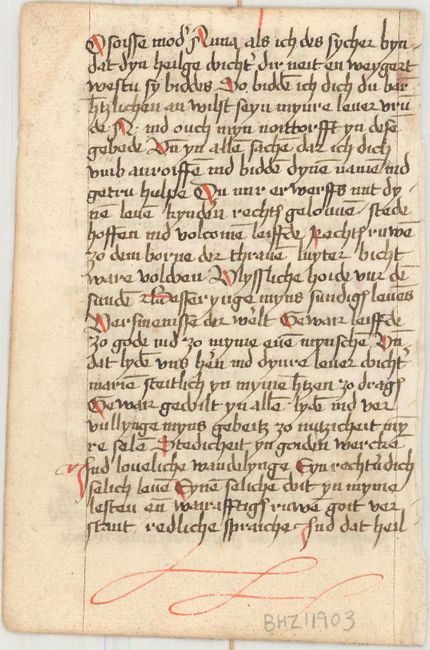 O soisse mod' Anna als ich des sycher byn
dat dyn heilge docht' dir neit en weygert
westu sy biddes So bidde ich dich du har
tzlichen an wilst seyn mynre lever vru
de N. ind ouch myn nottorfft yn dese
gebede Un yn alle sache dar ich dich
vmb anroiffen ind bidde dyne namē ind
getru helpe Un mir erwerffs mit dy
nē levē kynden rechtē gelouuē stede
hoffen ind volcomē leiffde Rechtē ruwē
zo dem borne der thranē luyter bicht
ware volcher Vlyssliche hoide vur dē
sundē Besseryuge myns sundigs levens
Versmenisse der werlt Gewair leiffde
zo gode ind zo myme evē mynsche Un
dat lydē vns hern ind dynre lever docht'
marien steitlich yn myme htzen zo drags
Gewar gedult yn allē lydē ind ver
vullynge myns gebeitz zo nutzicheit my
re selē Stedicheit yn goiden wercke
Ind loveliche wandelynge Eyn recht
selich levē Eynē seliche doit yn myme
lesten en warafftigs ruwē goit ver
stant redliche spraiche Ind dat heil
BHZ11903